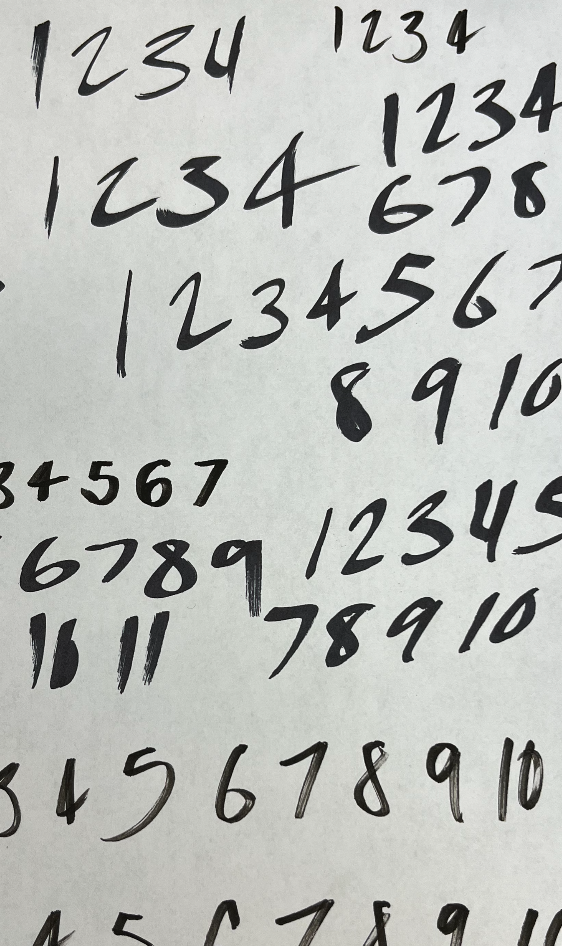 1234
1234
1234
1234
678
1234567
8 9 10
34567
6789
12345
10 11
78910
3 4 5 6 7 8 9 10
4 5 6 7 8 9 10